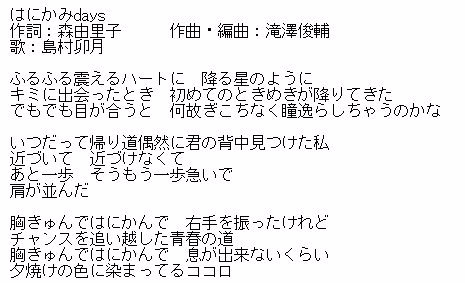 はにかみdays
作詞：森由里子　　　作曲・編曲：滝澤俊輔
歌：島村卯月
ふるふる震えるハートに　降る星のように
キミに出会ったとき　初めてのときめきが降りてきた
でもでも目が合うと　何故ぎこちなく瞳逸らしちゃうのかな
いつだって帰り道偶然に君の背中見つけた私
近づいて　近づけなくて
あと一歩　そうもう一歩急いで
肩が並んだ
胸きゅんではにかんで　右手を振ったけれど
チャンスを追い越した青春の道
胸きゅんではにかんで　息が出来ないくらい
夕焼けの色に染まってるココロ